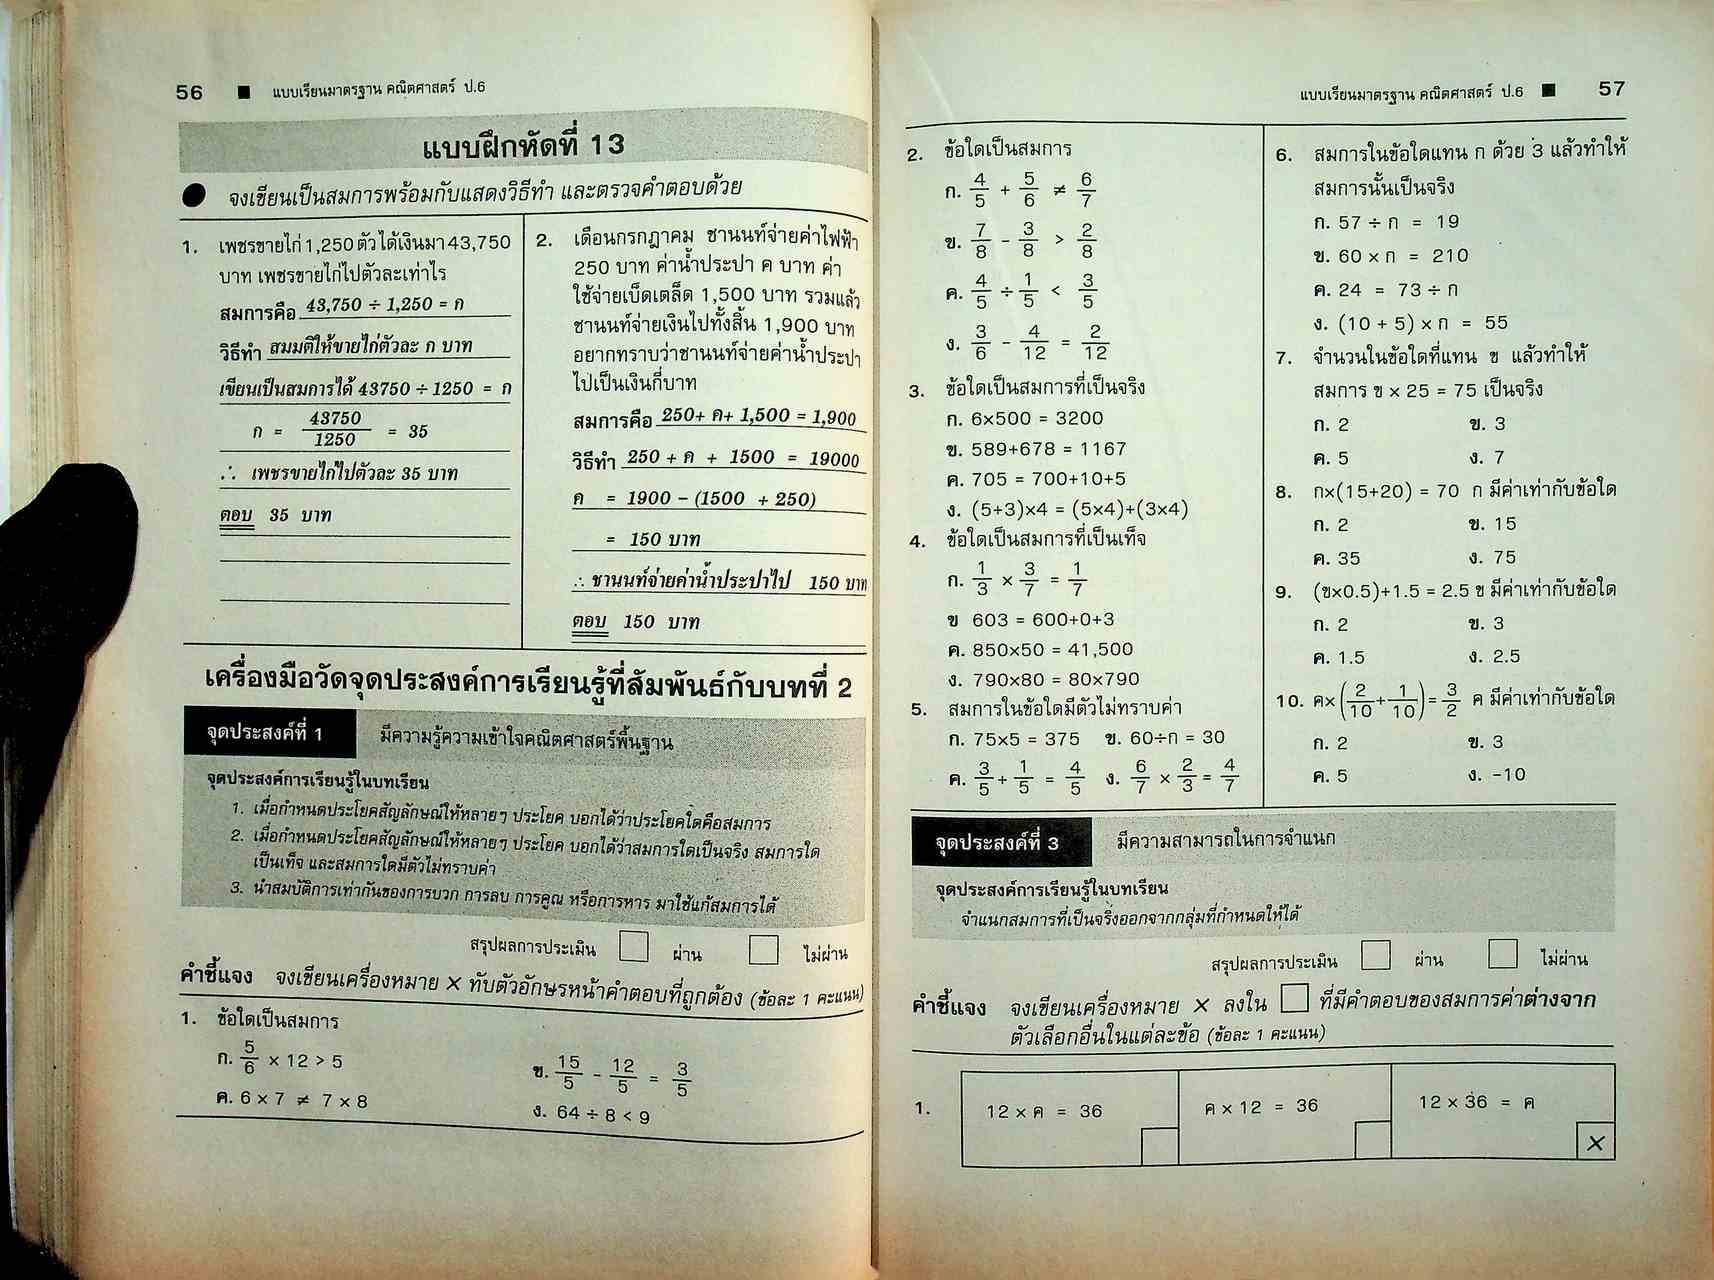 56 ■ แบบเรียนมาตรฐาน คณิตศาสตร์ ป.6
แบบฝึกหัดที่ 13
● จงเขียนเป็นสมการพร้อมกับแสดงวิธีทำ และตรวจคำตอบด้วย
1. เพชรขายไก่ 1,250 ตัว ได้เงินมา 43,750
บาท เพชรขายไก่ไปตัวละเท่าไร
สมการคือ 43,750 ÷ 1,250 = ก
วิธีทำ สมมติให้ขายไก่ตัวละ ก บาท
เขียนเป็นสมการได้ 43750 ÷ 1250 = ก
ก = 43750/1250 = 35
∴ เพชรขายไก่ไปตัวละ 35 บาท
ตอบ 35 บาท
2. เดือนกรกฎาคม ชานนท์จ่ายค่าไฟฟ้า
250 บาท ค่าน้ำประปา ค บาท ค่า
ใช้จ่ายเบ็ดเตล็ด 1,500 บาท รวมแล้ว
ชานนท์จ่ายเงินไปทั้งสิ้น 1,900 บาท
อยากทราบว่าชานนท์จ่ายค่าน้ำประปา
ไปเป็นเงินกี่บาท
สมการคือ 250+ ค+ 1,500 = 1,900
วิธีทำ 250 + ค + 1500 = 19000
ค = 1900 – (1500 + 250)
= 150 บาท
∴ ชานนท์จ่ายค่าน้ำประปาไป 150 บาท
ตอบ 150 บาท
เครื่องมือวัดจุดประสงค์การเรียนรู้ที่สัมพันธ์กับบทที่ 2
จุดประสงค์ที่ 1 มีความรู้ความเข้าใจคณิตศาสตร์พื้นฐาน
จุดประสงค์การเรียนรู้ในบทเรียน
1. เมื่อกำหนดประโยคสัญลักษณ์ให้หลายๆ ประโยค บอกได้ว่าประโยคใดคือสมการ
2. เมื่อกำหนดประโยคสัญลักษณ์ให้หลายๆ ประโยค บอกได้ว่าสมการใดเป็นจริง สมการใด
เป็นเท็จ และสมการใดมีตัวไม่ทราบค่า
3. นำสมบัติการเท่ากันของการบวก การลบ การคูณ หรือการหาร มาใช้แก้สมการได้
สรุปผลการประเมิน □ ผ่าน □ ไม่ผ่าน
คำชี้แจง จงเขียนเครื่องหมาย × ทับตัวอักษรหน้าคำตอบที่ถูกต้อง (ข้อละ 1 คะแนน)
1. ข้อใดเป็นสมการ
ก. 5/6 × 12 > 5 ข. 15/5 - 12/5 = 3/5
ค. 6 × 7 ≠ 7 × 8 ง. 64 ÷ 8 < 9
แบบเรียนมาตรฐาน คณิตศาสตร์ ป.6 ■ 57
2. ข้อใดเป็นสมการ
ก. 4/5 + 5/6 ≠ 6/7
ข. 7/8 - 3/8 > 2/8
ค. 4/5 ÷ 1/5 < 3/5
ง. 3/6 - 4/12 = 2/12
3. ข้อใดเป็นสมการที่เป็นจริง
ก. 6×500 = 3200
ข. 589+678 = 1167
ค. 705 = 700+10+5
ง. (5+3)×4 = (5×4)+(3×4)
4. ข้อใดเป็นสมการที่เป็นเท็จ
ก. 1/3 × 3/7 = 1/7
ข 603 = 600+0+3
ค. 850×50 = 41,500
ง. 790×80 = 80×790
5. สมการในข้อใดมีตัวไม่ทราบค่า
ก. 75×5 = 375 ข. 60÷ก = 30
ค. 3/5 + 1/5 = 4/5 ง. 6/7 × 2/3 = 4/7
6. สมการในข้อใดแทน ก ด้วย 3 แล้วทำให้
สมการนั้นเป็นจริง
ก. 57 ÷ ก = 19
ข. 60 × ก = 210
ค. 24 = 73 ÷ ก
ง. (10 + 5) × ก = 55
7. จำนวนในข้อใดที่แทน ข แล้วทำให้
สมการ ข × 25 = 75 เป็นจริง
ก. 2 ข. 3
ค. 5 ง. 7
8. ก×(15+20) = 70 ก มีค่าเท่ากับข้อใด
ก. 2 ข. 15
ค. 35 ง. 75
9. (ข×0.5)+1.5 = 2.5 ข มีค่าเท่ากับข้อใด
ก. 2 ข. 3
ค. 1.5 ง. 2.5
10. ค×(2/10+1/10)=3/2 ค มีค่าเท่ากับข้อใด
ก. 2 ข. 3
ค. 5 ง. -10
จุดประสงค์ที่ 3 มีความสามารถในการจำแนก
จุดประสงค์การเรียนรู้ในบทเรียน
จำแนกสมการที่เป็นจริงออกจากกลุ่มที่กำหนดให้ได้
สรุปผลการประเมิน □ ผ่าน □ ไม่ผ่าน
คำชี้แจง จงเขียนเครื่องหมาย × ลงใน □ ที่มีคำตอบของสมการค่าต่างจาก
ตัวเลือกอื่นในแต่ละข้อ (ข้อละ 1 คะแนน)
1. 12 × ค = 36 ค × 12 = 36 12 × 36 = ค
×